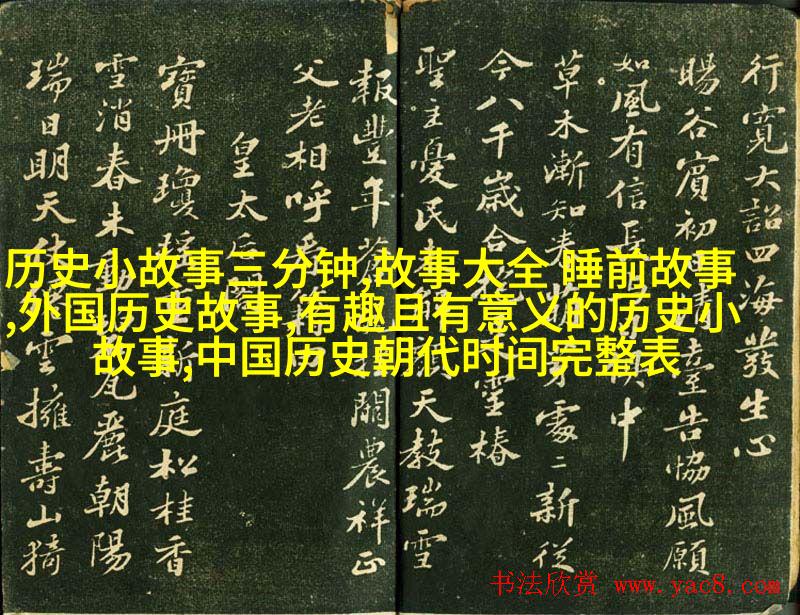 历史小故事三分钟,故事大全 睡前故事
,外国历史故事,有趣且有意义的历史小
故事,中国历史朝代时间完整表
行寬大詔四海發生心
暘谷賓初日清臺告協風願
如風有信長中
草木漸知春芽處二新從
今八千歲合靈椿
聖主憂民天教瑞雪
報豐年闢農祥正
父老相呼
皇太后
寶冊瓊庭松桂香
雪消春未動瓦麗朝陽
瑞日明天雲擁壽山猗
书法欣赏 www.yac8.com